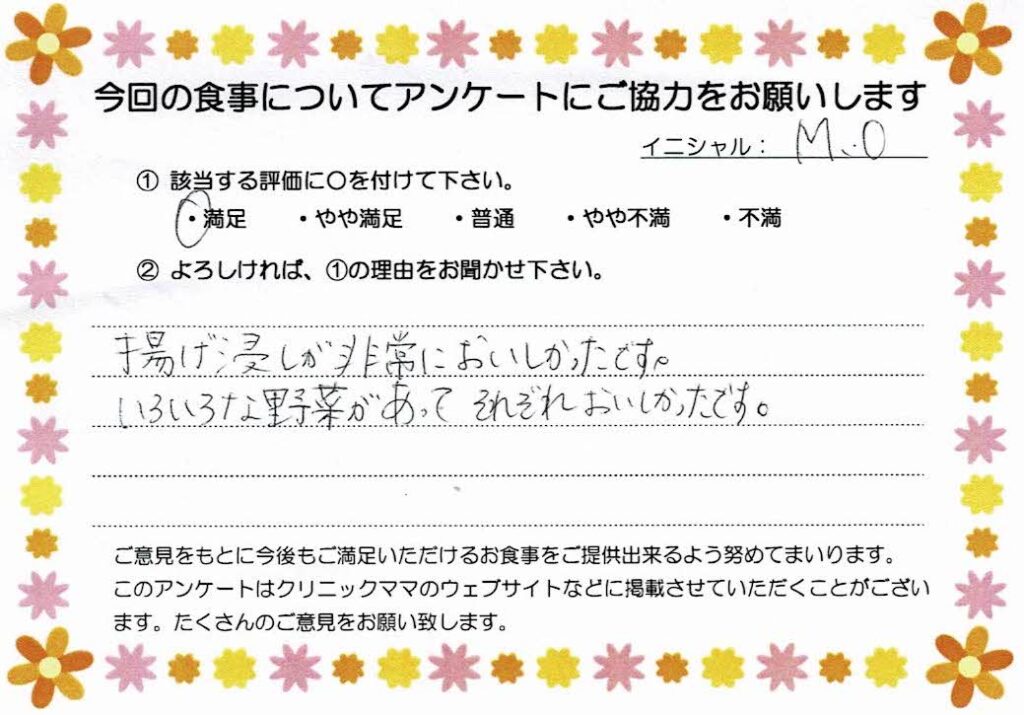 今回の食事についてアンケートにご協力をお願いします
イニシャル： M.O
① 該当する評価に〇を付けて下さい。
・満足 ・やや満足 ・普通 ・やや不満 ・不満
② よろしければ、①の理由をお聞かせ下さい。
揚げ浸しが非常においしかったです。
いろいろな野菜があって それぞれおいしかったです。
ご意見をもとに今後もご満足いただけるお食事をご提供出来るよう努めてまいります。
このアンケートはクリニックママのウェブサイトなどに掲載させていただくことがござい
ます。たくさんのご意見をお願い致します。